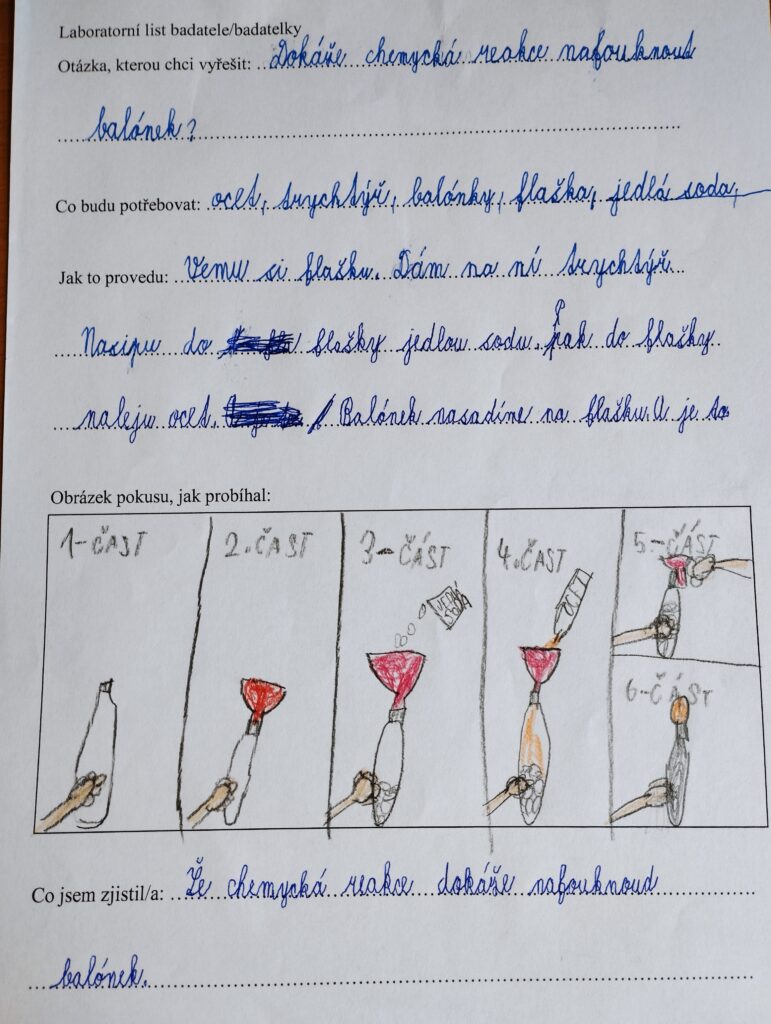 Laboratorní list badatele/badatelky
Otázka, kterou chci vyřešit: Dokáže chemycká reakce nafouknout
balónek?
Co budu potřebovat: ocet, trychtýř, balónky, flaška, jedlá soda,
Jak to provedu: Vemu si flašku. Dám na ní trychtýř.
Nasipu do flašky jedlou sodu. Pak do flašky
naleju ocet. Balónek nasadíme na flašku. A je to
Obrázek pokusu, jak probíhal:
1-ČÁST 2.ČÁST 3-ČÁST 4.ČÁST 5.-ČÁST
SODA
OCET
6-ČÁST
Co jsem zjistil/a: Že chemycká reakce dokáže nafouknoud
balónek.